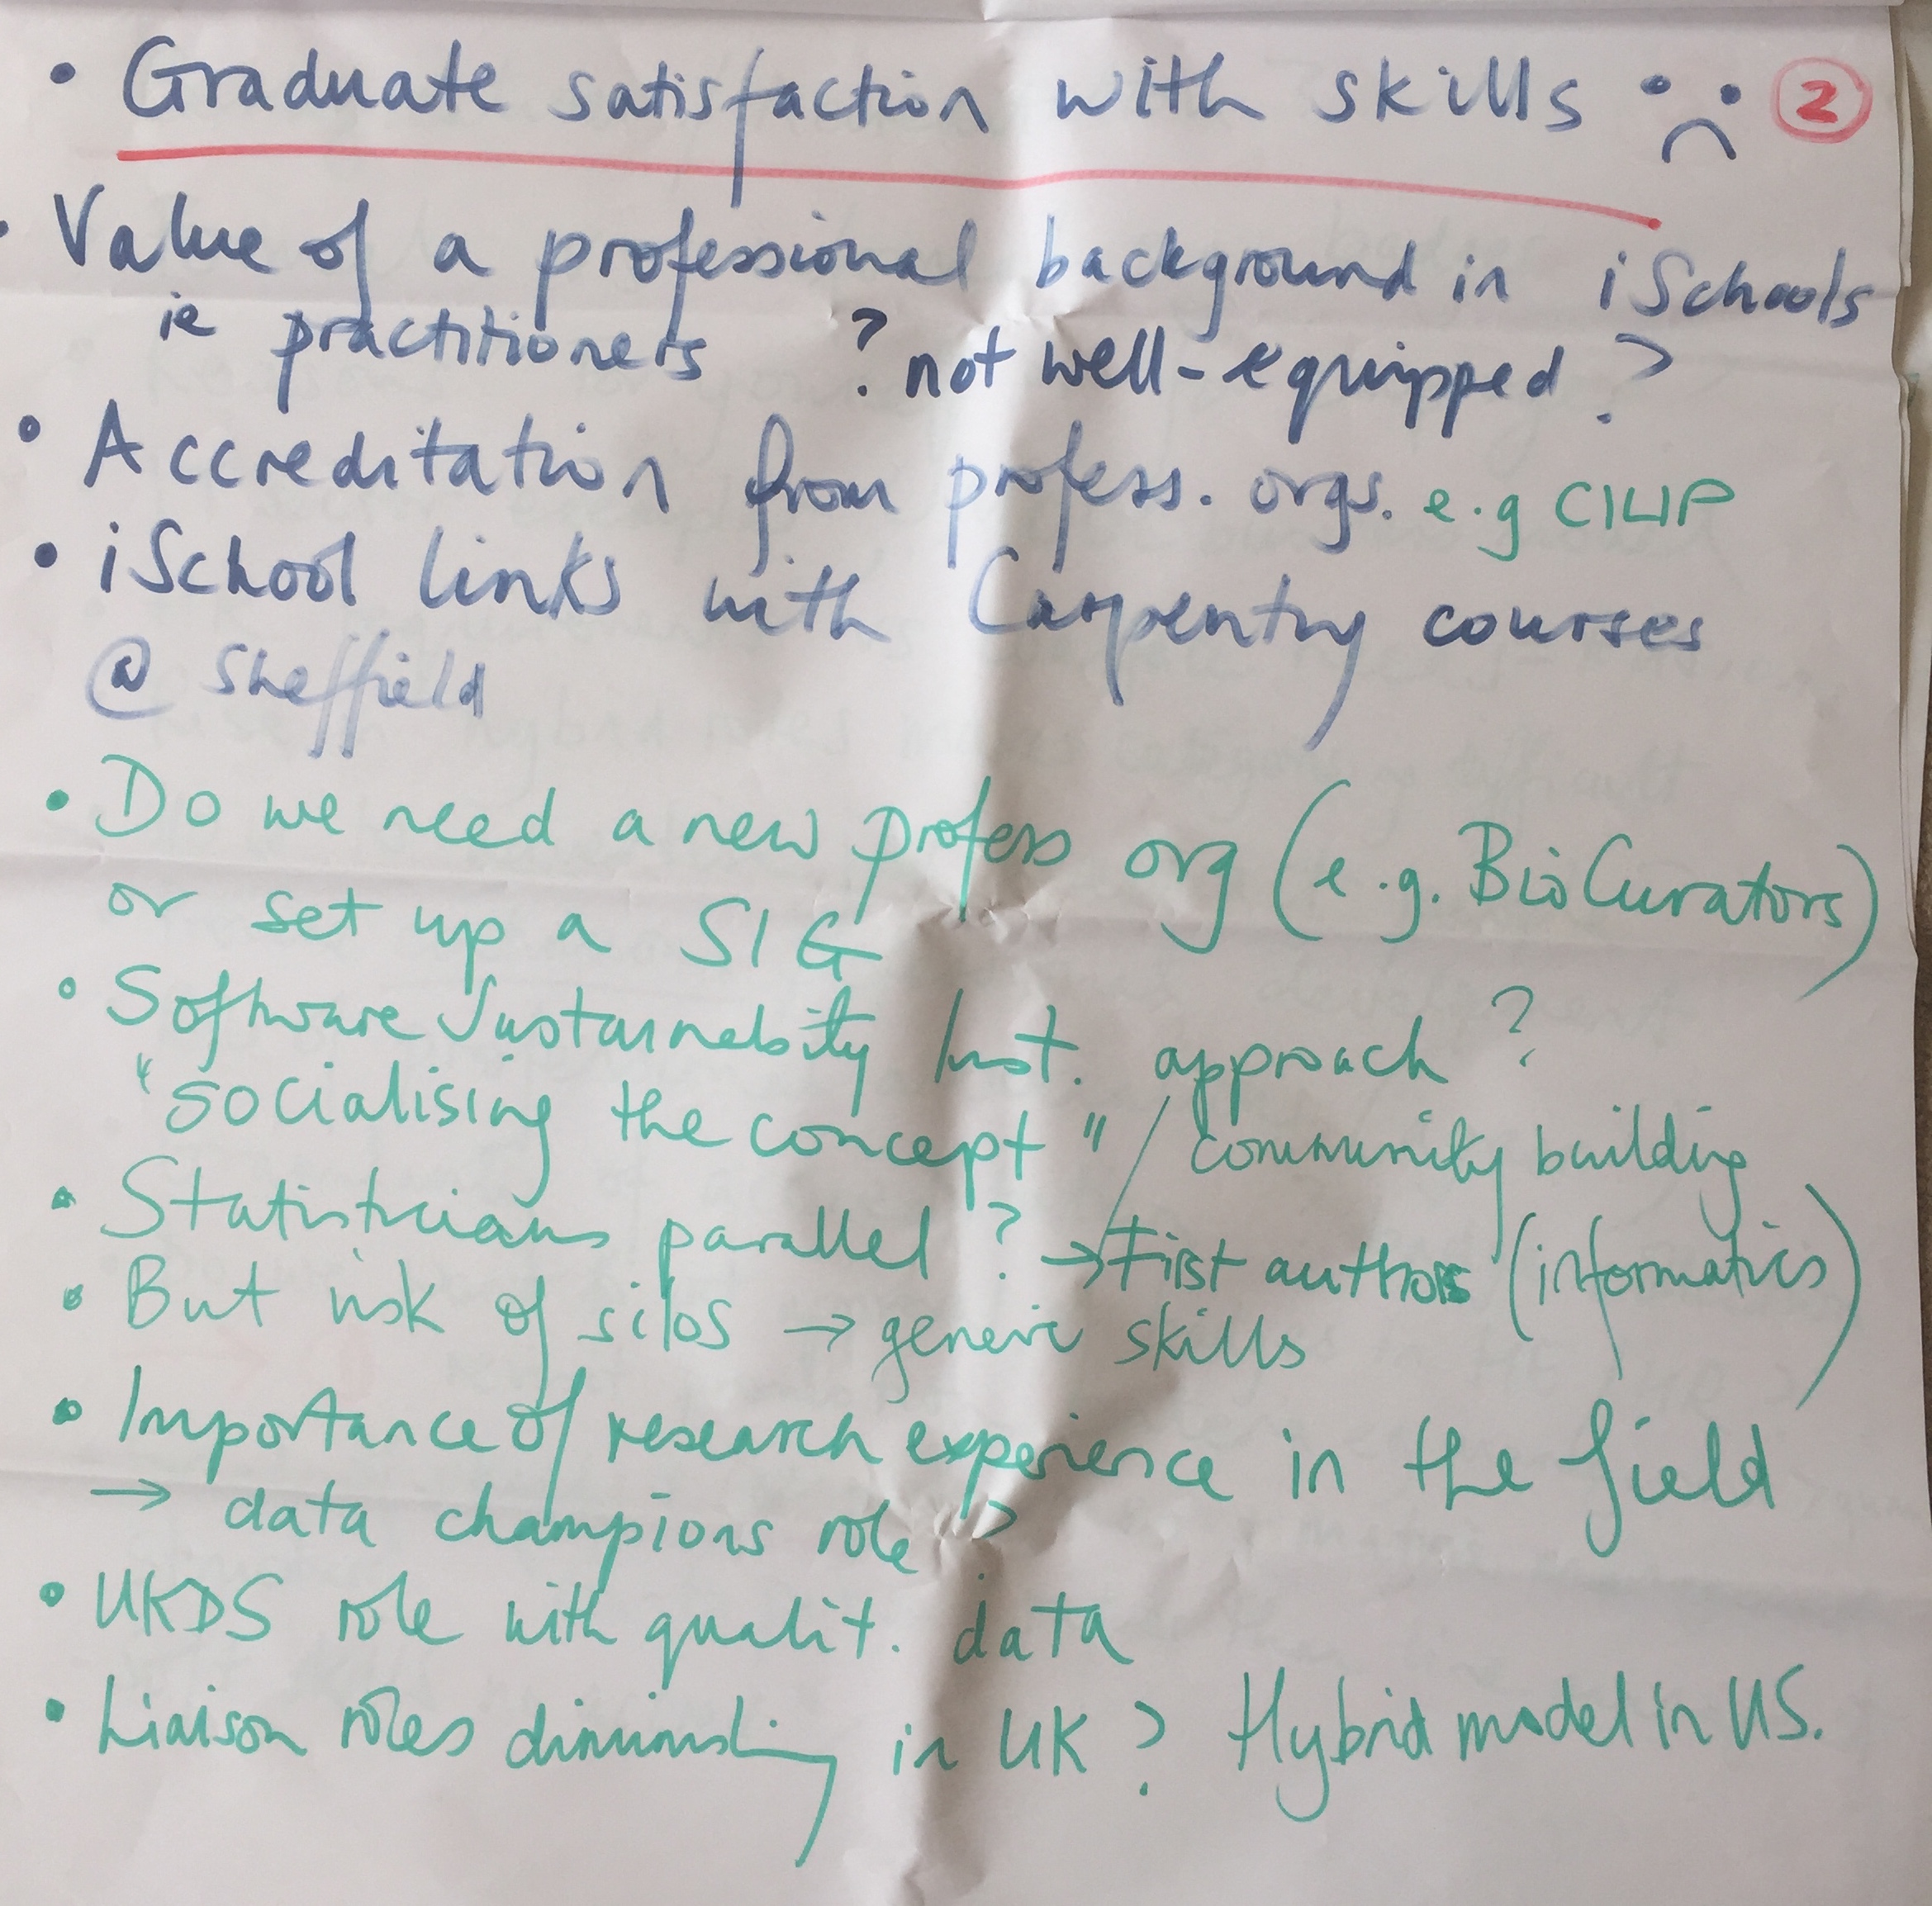 • Graduate satisfaction with skills ②
• Value of a professional background in iSchools
ie practitioners ? not well-equipped ?
• Accreditation from profess. orgs. e.g CILIP
• iSchool links with Carpentry courses
@ Sheffield
• Do we need a new profess org (e.g. BioCurators)
or set up a SIG
• Software Sustainability Inst. approach ?
"socialising the concept" / community building
• Statisticians parallel ? → First authors (informatics)
• But risk of silos → generic skills
• Importance of research experience in the field
→ data champions role ?
• UKDS role with qualit. data
• Liaison roles diminishing in UK ? Hybrid model in US.